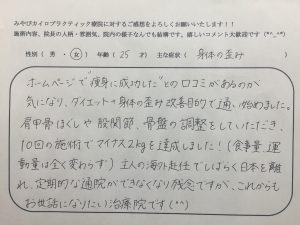 みやびカイロプラクティック療院に対するご感想をよろしくお願いいたします!!
施術内容、院長の人柄・雰囲気、院内の様子なんでも結構です。嬉しいコメント大歓迎です(*^_^*)
性別( 男 ・ 女 ) 年齢( 25 才) 主な症状( 身体の歪み
ホームページで"痩身に成功した"との口コミがあるのが
気になり、ダイエット+身体の歪み改善目的で通い始めました。
肩甲骨はぐしや股関節、骨盤の調整をしていただき、
10回の施術でマイナス2kgを達成しました!(食事量、運
動量は全く変わらず)主人の海外赴任でしばらく日本を離
れ、定期的な通院ができなくなり残念ですが、これからも
お世話になりたい治療院です(^^)